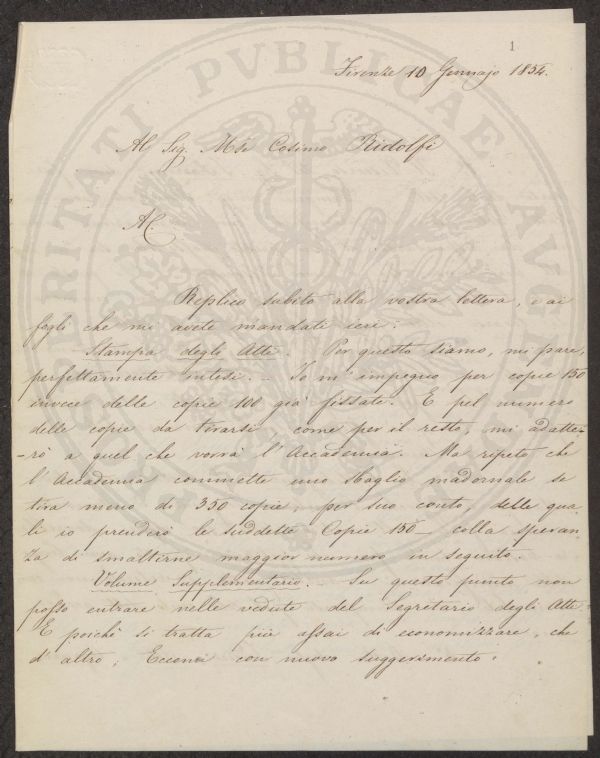 1
Firenze 10 Gennajo 1854.
Al Sig. Mse Cosimo Ridolfi
A.C.
Replico subito alla vostra lettera, e ai
fogli che mi avete mandate ieri.
Stampa degli Atti. Per questo siamo, mi pare,
perfettamente intesi. – Io m'impegno per copie 150
invece delle copie 100 già fissate. E pel numero
delle copie da tirarsi, come per il resto, mi adatte-
-rò a quel che vorrà l'Accademia. Ma ripeto che
l'Accademia commette uno sbaglio madornale se
tira meno di 350 copie, per suo conto, delle qua-
li io prenderò le suddette Copie 150 – colla speran-
za di smaltirne maggior numero in seguito.
Volume Supplementario. – Su questo punto non
posso entrare nelle vedute del Segretario degli Atti.
E poichè si tratta più assai di economizzare, che
d'altro; Eccomi con nuovo suggerimento.
PROSPERITATI PVBLICAE AVGE